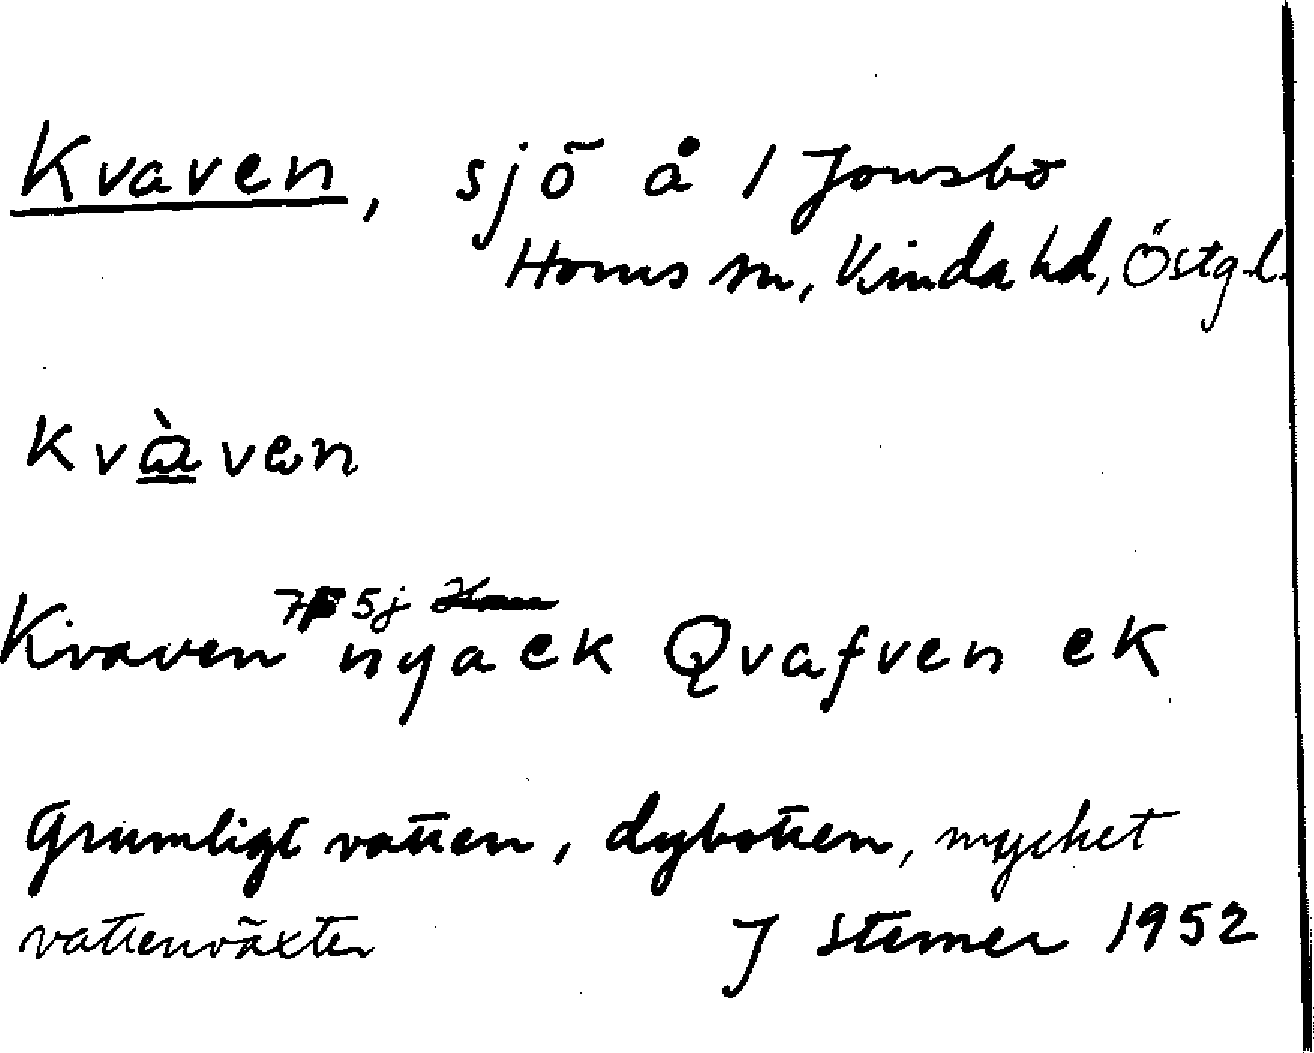 Kvaven, sjö å 1 Jonsbo
Horns sn, Kinda hd, Östg.l.
Kvàven
7F 5j
Kvaven nya ek Qvafven ek
Grumligt vatten, dybotten, mycket
vattenväxter J Sterner 1952